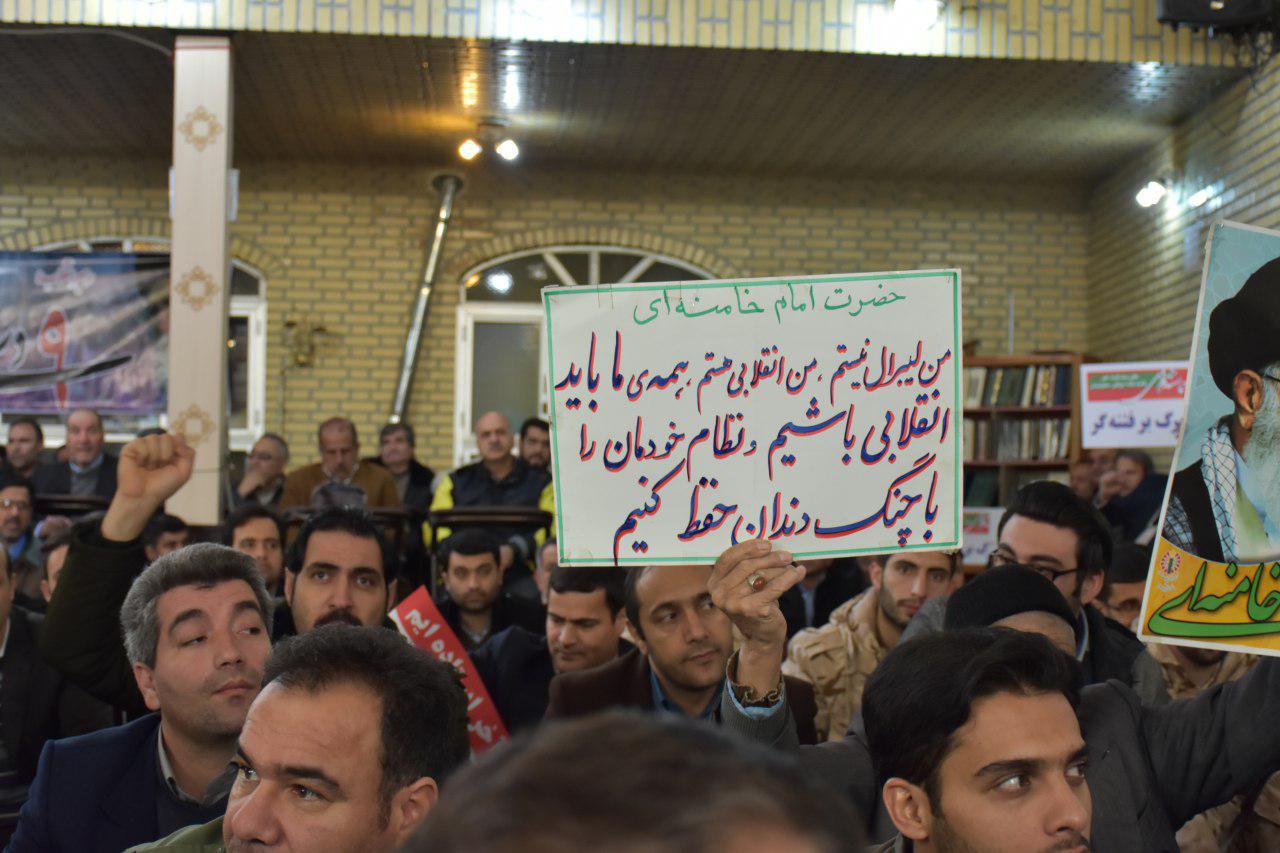 حضرت امام خامنه‌ای
من لیبرال نیستم ، من انقلابی هستم ، همه‌ی ما باید
انقلابی باشیم و نظام خودمان را
با چنگ دندان حفظ کنیم
خامنه‌ای
رگ بر فتنه گر
۹